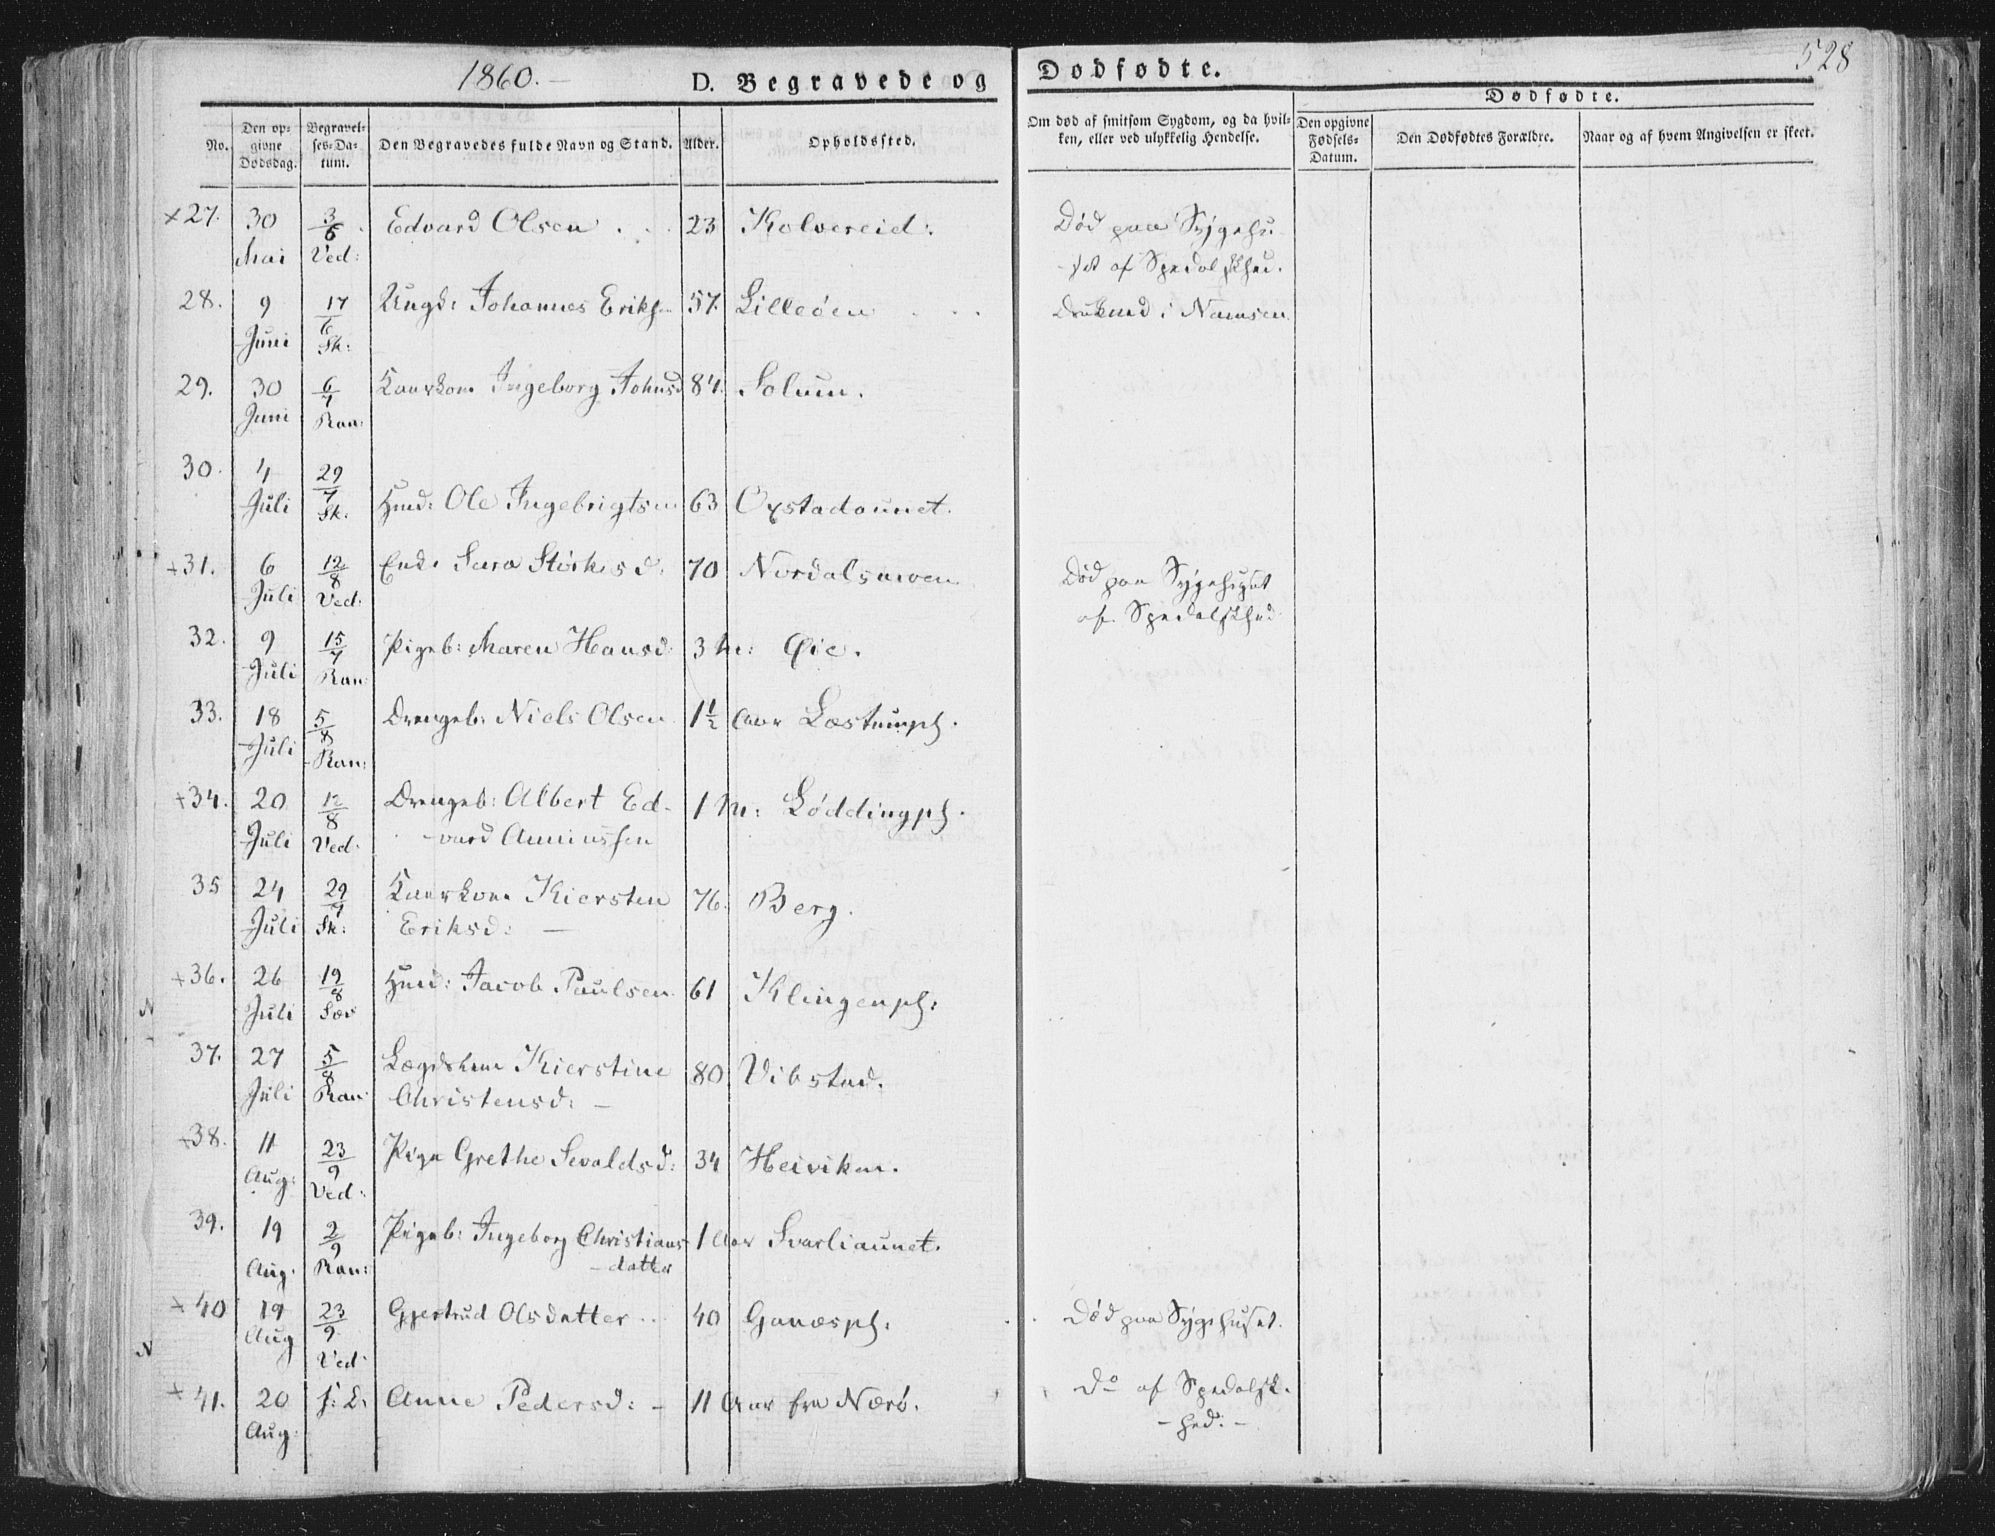 1860.—
528
D. Begravede og Dødfødte.
Dødfødte.
No.
Den opgivne Dødsdag.
Begravelses-Datum.
Den Begravedes fulde Navn og Stand.
Alder.
Opholdssted.
Om død af smitsom Sygdom, og da hvilken, eller ved ulykkelig Hendelse.
Den opgivne Fødsels-Datum.
Den Dødfødtes Forældre.
Naar og af hvem Angivelsen er skeet.
+27. 30 3/6 Edvard Olsen 23 Kolvereid: Død paa Sygehu-
Mai Ved: set af Spedalskhed.
28. 9 17/6 Ungd: Johannes Eriks. 57. Lilleøen Drukned i Namsen.
Juni Sk:
29. 30 6/7 Kaarkone Ingeborg Johnsd 84. Solum.
Juni Ran:
30. 4 29/7
Juli Sk. Huusmd: Ole Ingebrigtsen 63 Oxstadaunet.
+31. 6 12/8 Enke Sara Störksd: 70 Nordalsmoen Død paa Sygehuset
Juli Ved: af Spedalskhed
32. 9 15/7 Pigeb: Maren Hansd: 3 M: Øie.
Juli Ran:
33. 18 5/8 Drengeb: Niels Olsen 1½ Aar
Juli Ran:
+34. 20 12/8 Drengeb: Albert Ed- 1 M: Løddingpl.
Juli Ved: vard
35 24 29/9 Kaarkone Kiersten 76. Berg.
Juli Sk: Eriksd: —
N +36. 26 19/8 Jacob Paulsen 61 Klingenpl:
Juli Sæv
37. 27 5/8 Lægdslem Kierstine 80 Vibstad.
Juli Ran: Christensd: —
+38. 11 23/9 Pige Grethe Sevaldsd: 34 Heiviken.
Aug: Ved:
39. 19 2/9 Pigeb: Ingeborg Christians- 1 Aar Svarliaunet.
Aug. Ran: datter
+40 19 23/9 Gjertrud Olsdatter 40 Ganæspl: Død paa Sygehuset.
N Aug Ved:
+41. 20 s: D: Anne Pedersd: — 11 Aar fra Nærö. Do af Spedalsk-
Aug: hed. —